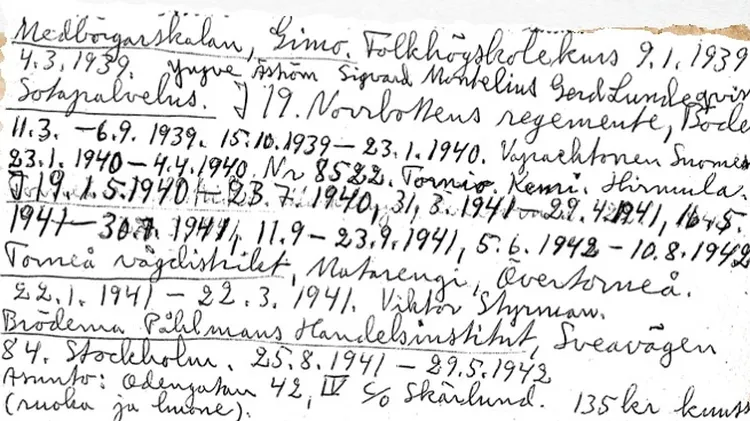 Medborgarskolan, Gimo. Folkhögskolekurs 9.1.1939
4.3.1939. Yngve Åström Sigvard Montelius Gerd Lundeqvist
Sotapalvelus. I 19. Norrbottens regemente, Bode
11.3. – 6.9. 1939. 15.10.1939 – 23.1.1940. Vapaaehtoinen Suomen
23.1.1940 – 4.4.1940. Nr 8522. Tornio. Kemi. Hirmula.
I 19. 1.5.1940 – 23.7.1940, 31.3.1941 – 29.4.1941, 16.5.
1941 – 30.7.1941, 11.9 – 23.9.1941, 5.6.1942 – 10.8.1942
Torneå vägdistrikt, Matarengi, Övertorneå.
22.1.1941 – 22.3.1941. Viktor Styrman.
Bröderna Påhlmans Handelsinstitut, Sveavägen
84. Stockholm. 25.8.1941 – 29.5.1942
Asunto: Odengatan 42, IV c/o Skärlund. 135 kr kuuss
(ruoka ja huone).